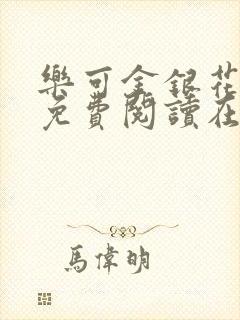 樂可金銀花
免費閱讀在
馬偉明